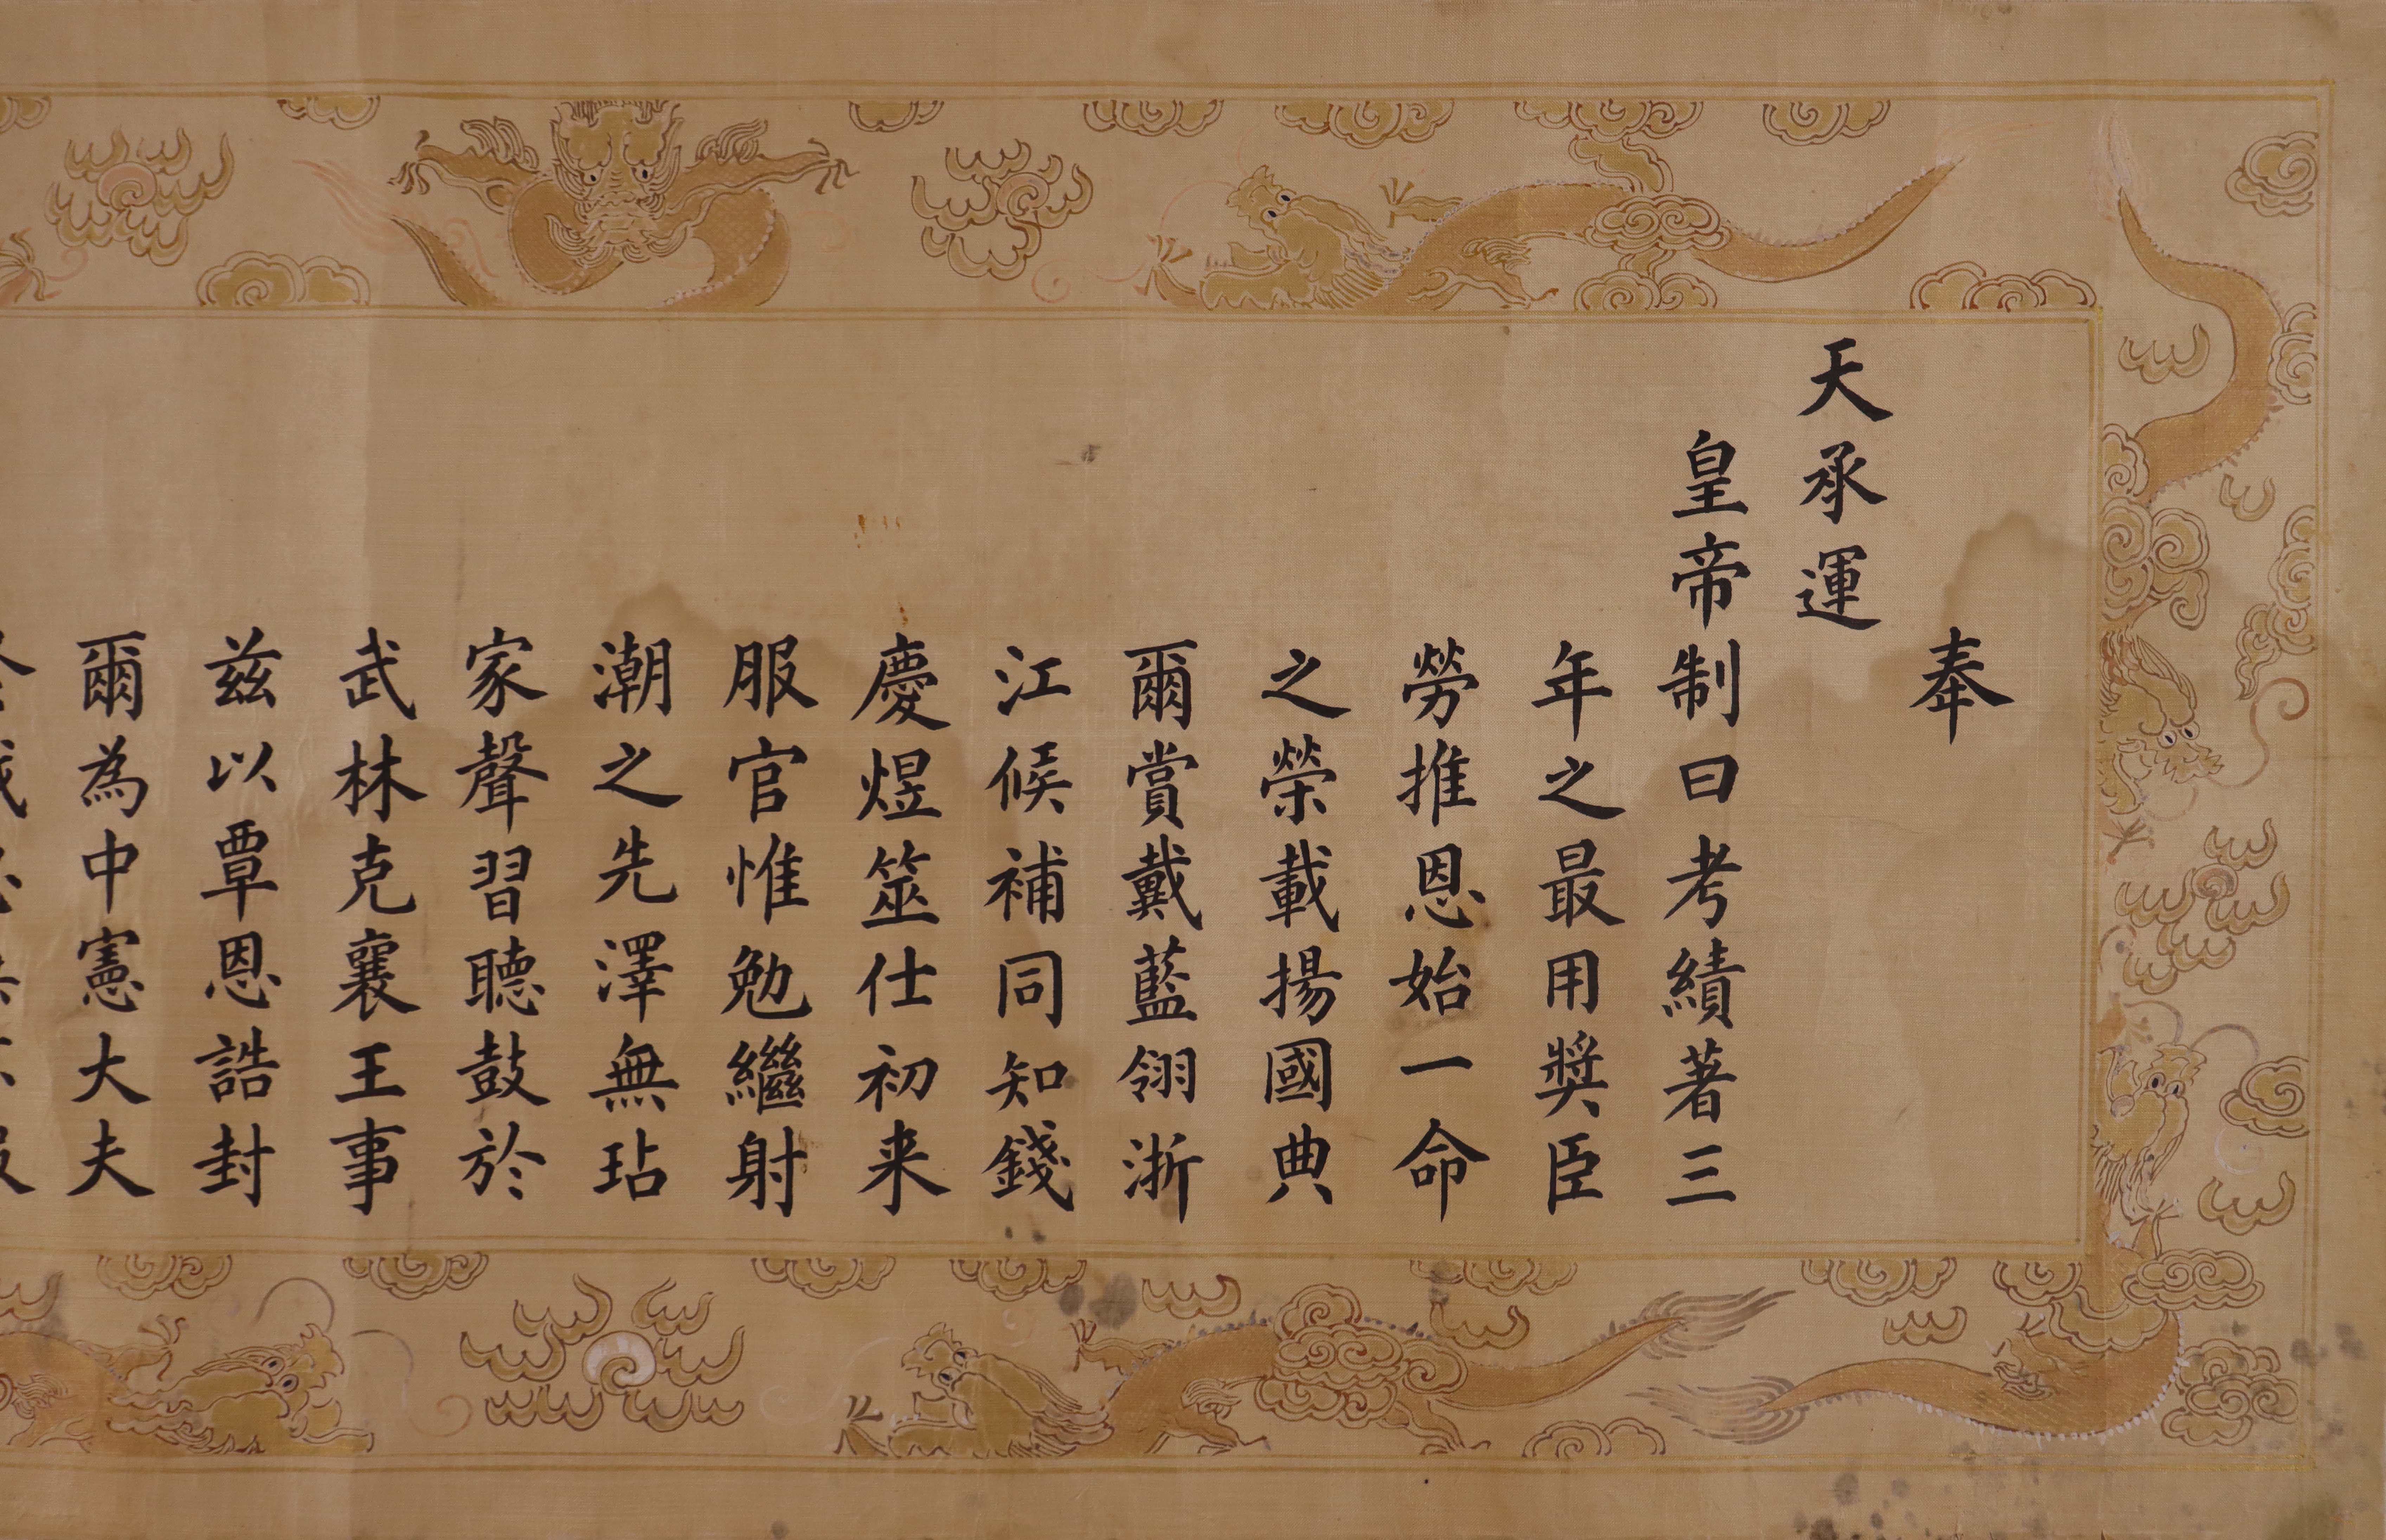 奉
天承運
皇帝制曰考績著三
年之最用獎臣
勞推恩始一命
之榮載揚國典
爾賞戴藍翎浙
江候補同知錢
慶煜筮仕初来
服官惟勉繼射
潮之先澤無玷
家聲習聽鼓於
武林克襄王事
兹以覃恩誥封
爾為中憲大夫